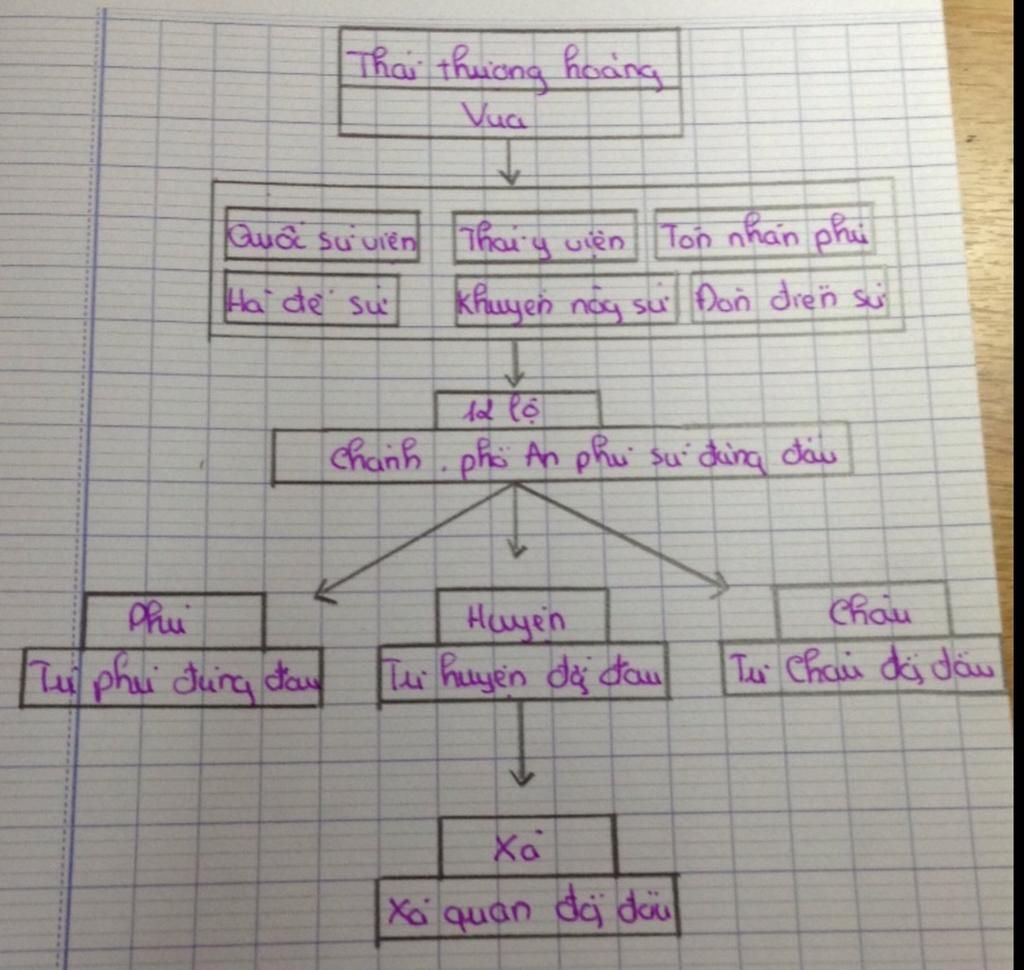 Thái thượng hoàng
Vua
Quốc sử viện
Thái y viện
Tôn nhân phủ
Hà đê sứ
Khuyến nông sứ
Đồn điền sứ
12 lộ
Chánh, phó An phủ sứ đứng đầu
Phủ
Huyện
Châu
Tri phủ đứng đầu
Tri huyện đứng đầu
Tri Châu đứng đầu
Xã
Xã quan đứng đầu